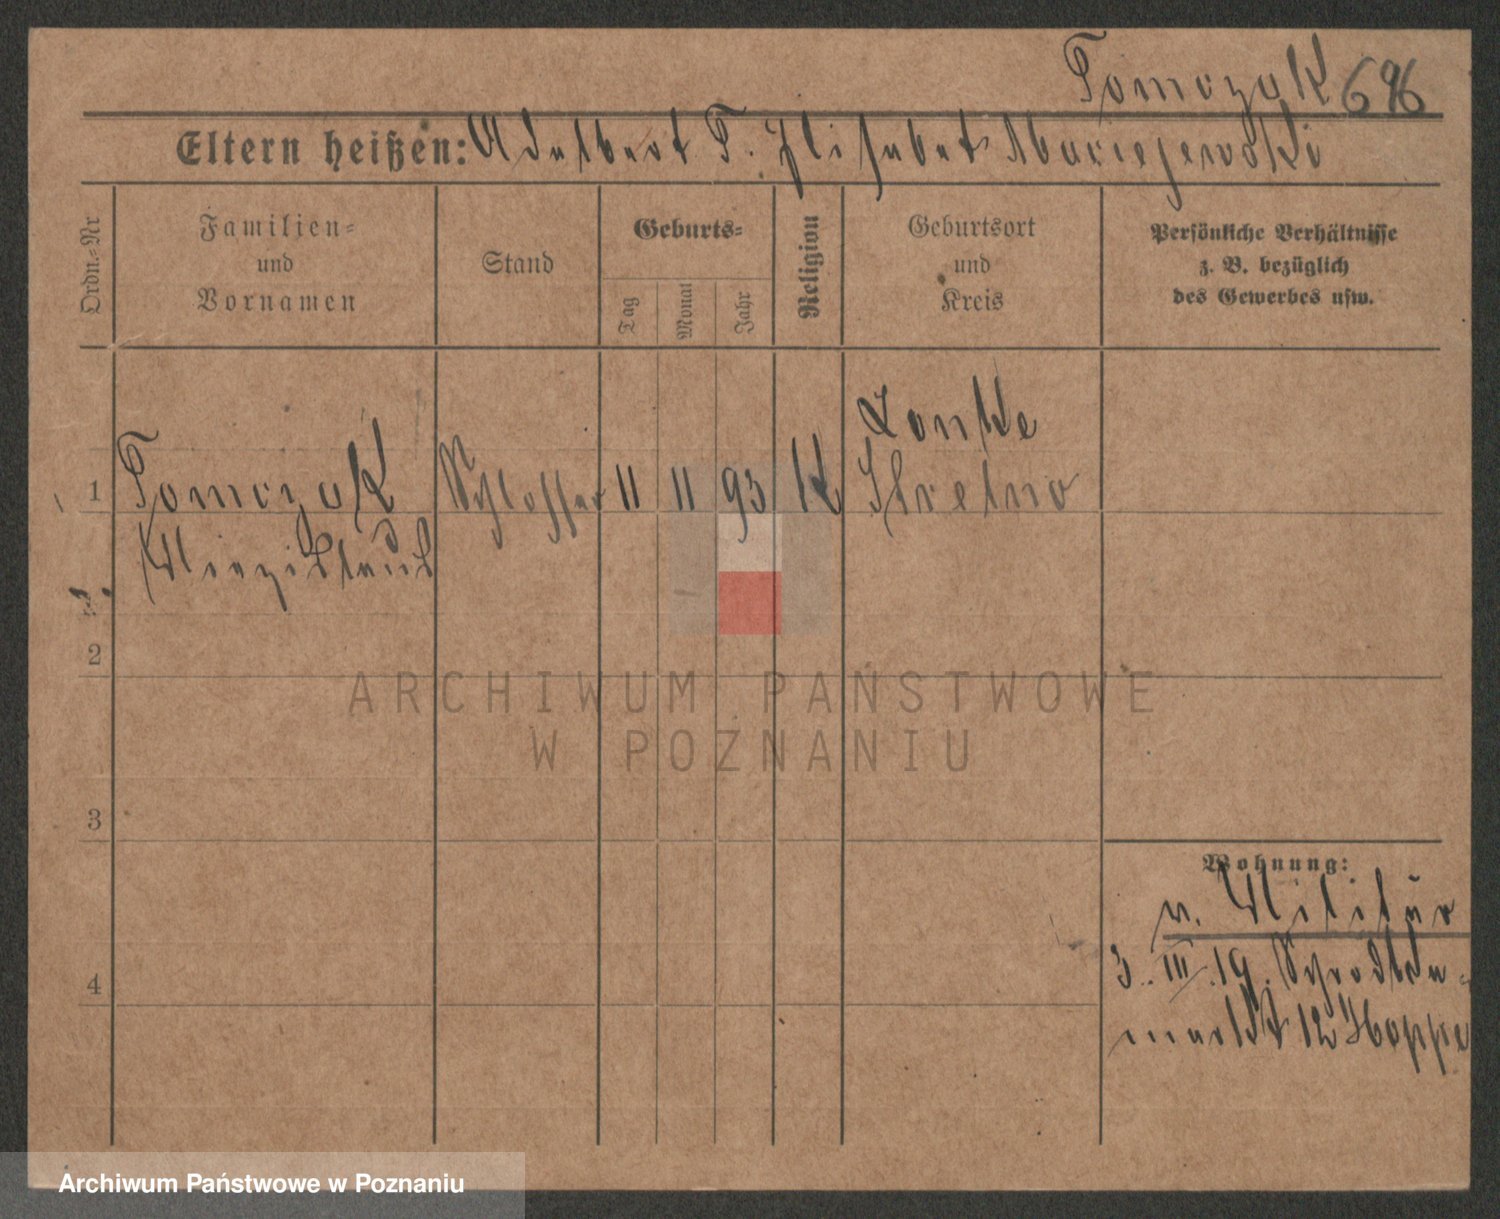 Tomczak 696
Eltern heißen: Adalbert T. Elisabeth Maciejewski
Ordn.-Nr
Familien-
und
Vornamen
Stand
Geburts-
Tag
Monat
Jahr
Religion
Geburtsort
und
Kreis
Persönliche Verhältnisse
z. B. bezüglich
des Gewerbes usw.
1 Tomczak Schlosser 11 11 93 K
Strelno
2
3
4
Wohnung:
v. Militär
3. III. 19. Schrodka-
markt 12 Hoppe
ARCHIWUM PAŃSTWOWE
W POZNANIU
Archiwum Państwowe w Poznaniu